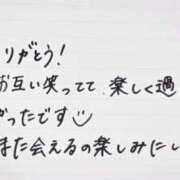 りがとう!
お互い笑ってて、楽しく過
かったです
また会えるの楽しみにし